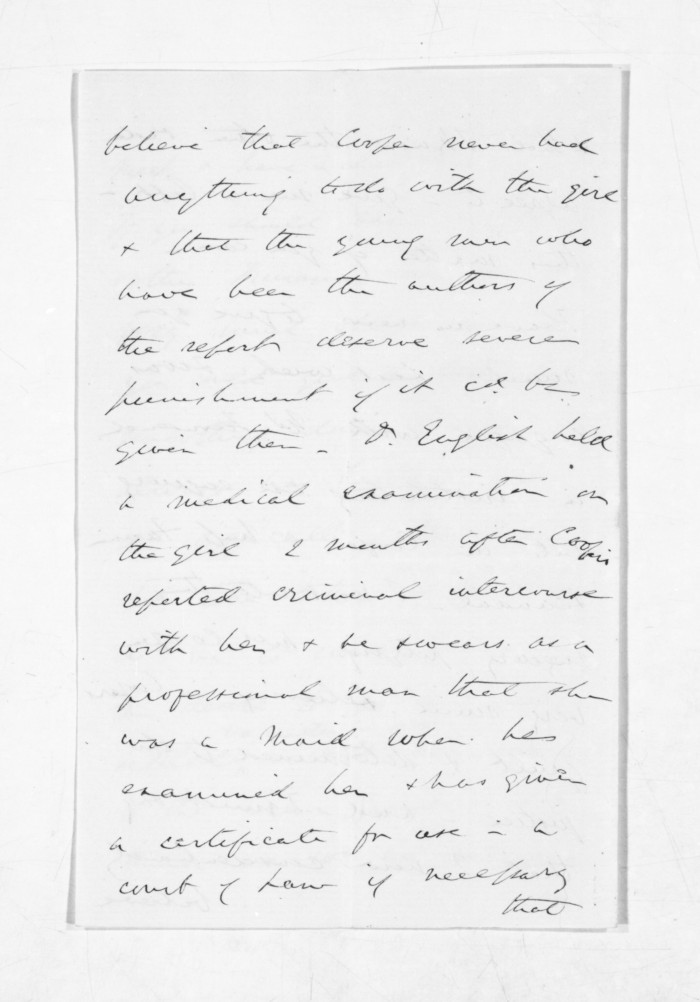 believe that Cooper never had
anything to do with the girl
& that the young men who
have been the authors of
the report deserve severe
punishment if it cd. be
given them _ Dr. English held
a medical examination on
the girl 2 months after Coopers
reported criminal intercourse
with her & he swears as a
professional man that she
was a Maid when he
examined her & has given
a certificate for use in a
court of Law if necessary
that